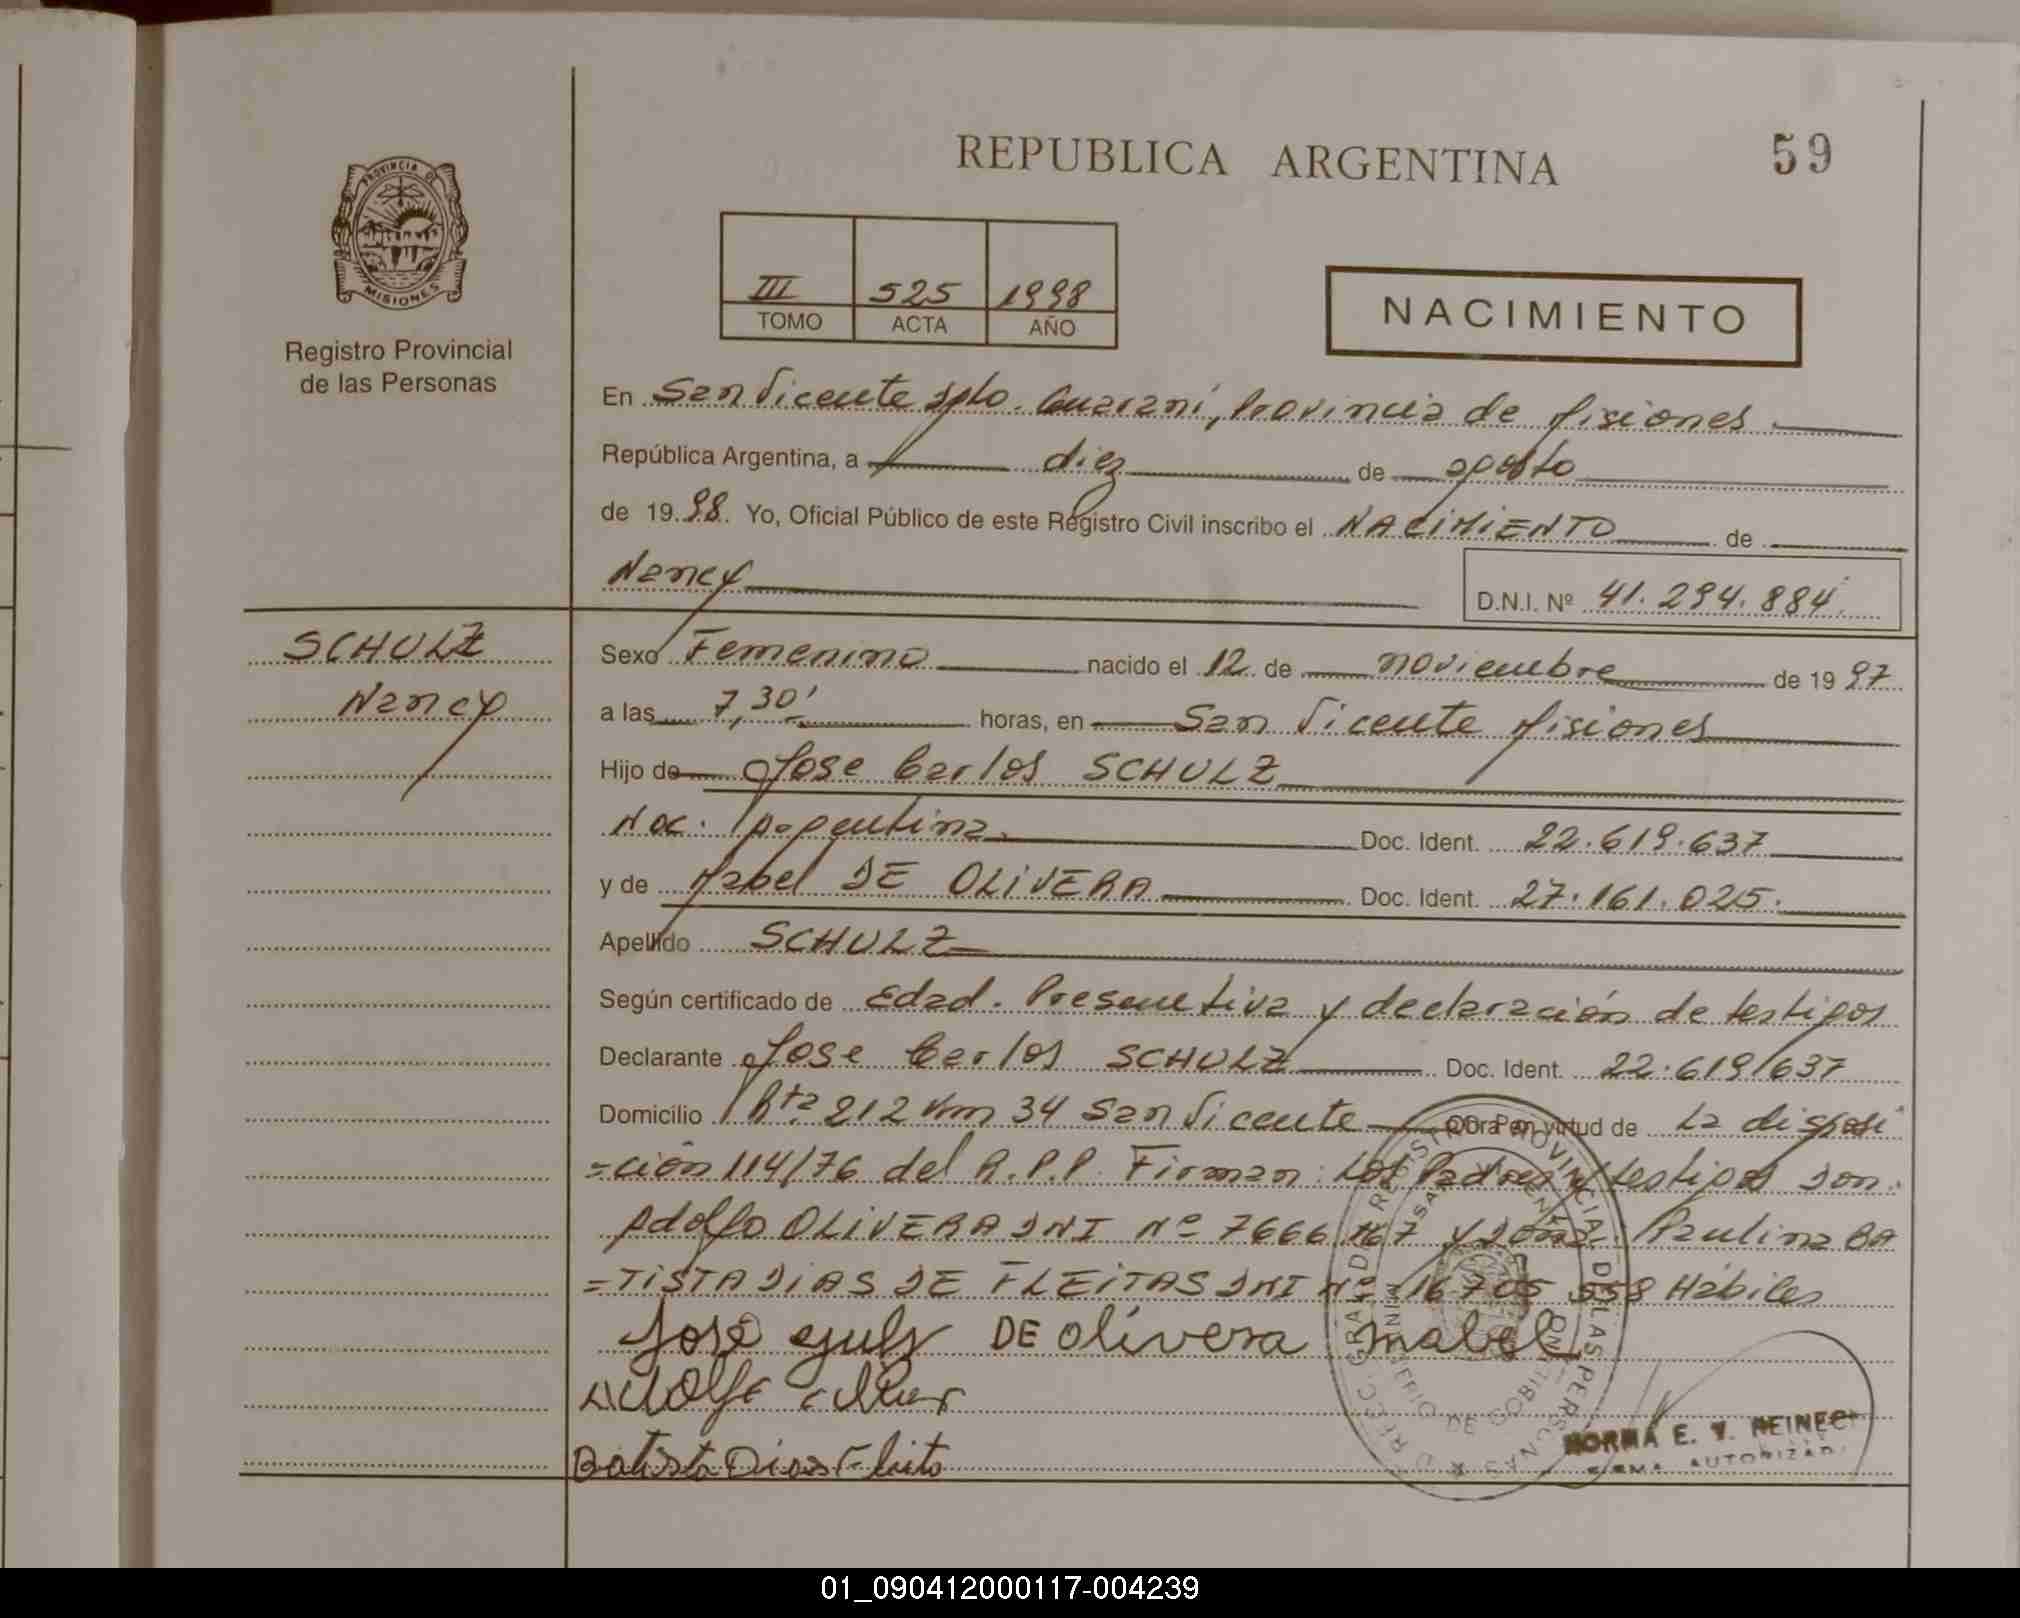 REPUBLICA ARGENTINA
59
PROVINCIA DE
MISIONES
Registro Provincial
de las Personas
III 525 1998
TOMO ACTA AÑO
NACIMIENTO
En San Vicente Dpto. Guaraní, Provincia de Misiones
República Argentina, a diez de agosto
de 1998. Yo, Oficial Público de este Registro Civil inscribo el NACIMIENTO de
Nancy
D.N.I. Nº 41.294.884
SCHULZ
Nancy
Sexo Femenino nacido el 12 de noviembre de 1997
a las 7,30' horas, en San Vicente Misiones
Hijo de Jose Carlos SCHULZ
Nac. Argentina Doc. Ident. 22.619.637
y de Mabel DE OLIVERA Doc. Ident. 27.161.025.
Apellido SCHULZ
Según certificado de Edad. Presuntiva y declaración de testigos
Declarante Jose Carlos SCHULZ Doc. Ident. 22.619.637
Domicilio Rta 212 Km 34 San Vicente Obra en virtud de La disposi
=ción 114/76 del R.P.P. Firman: Los Padres y testigos Don.
Adolfo OLIVERA DNI Nº 7666 167 y Doña: Paulina BA
=TISTA DIAS DE FLEITAS DNI Nº 16 705 558 Hábiles
José DE Olivera Mabel
Batista Dias
NORMA E. Y.
FIRMA AUTORIZADA
01_090412000117-004239